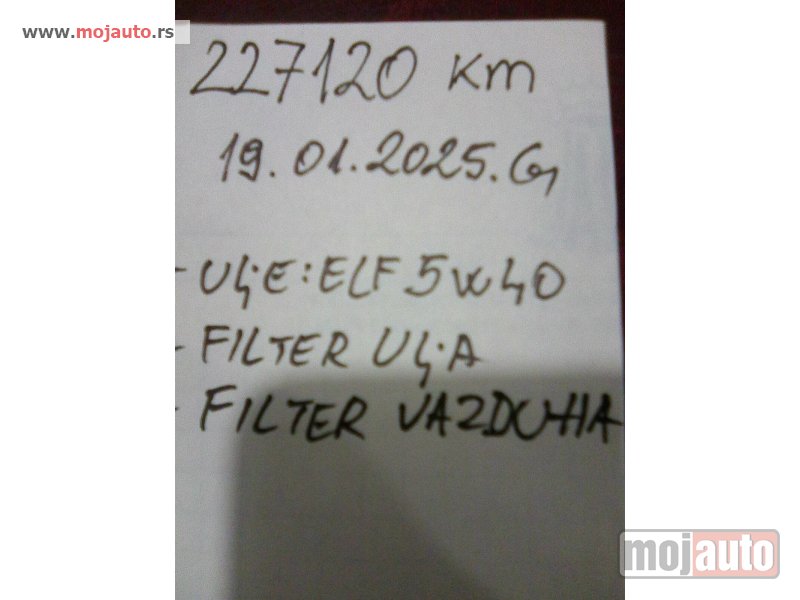 www.mojauto.rs
227120 km
19.01.2025.G
- ULJE: ELF 5W40
- FILTER ULJA
- FILTER VAZDUHA
mojauto